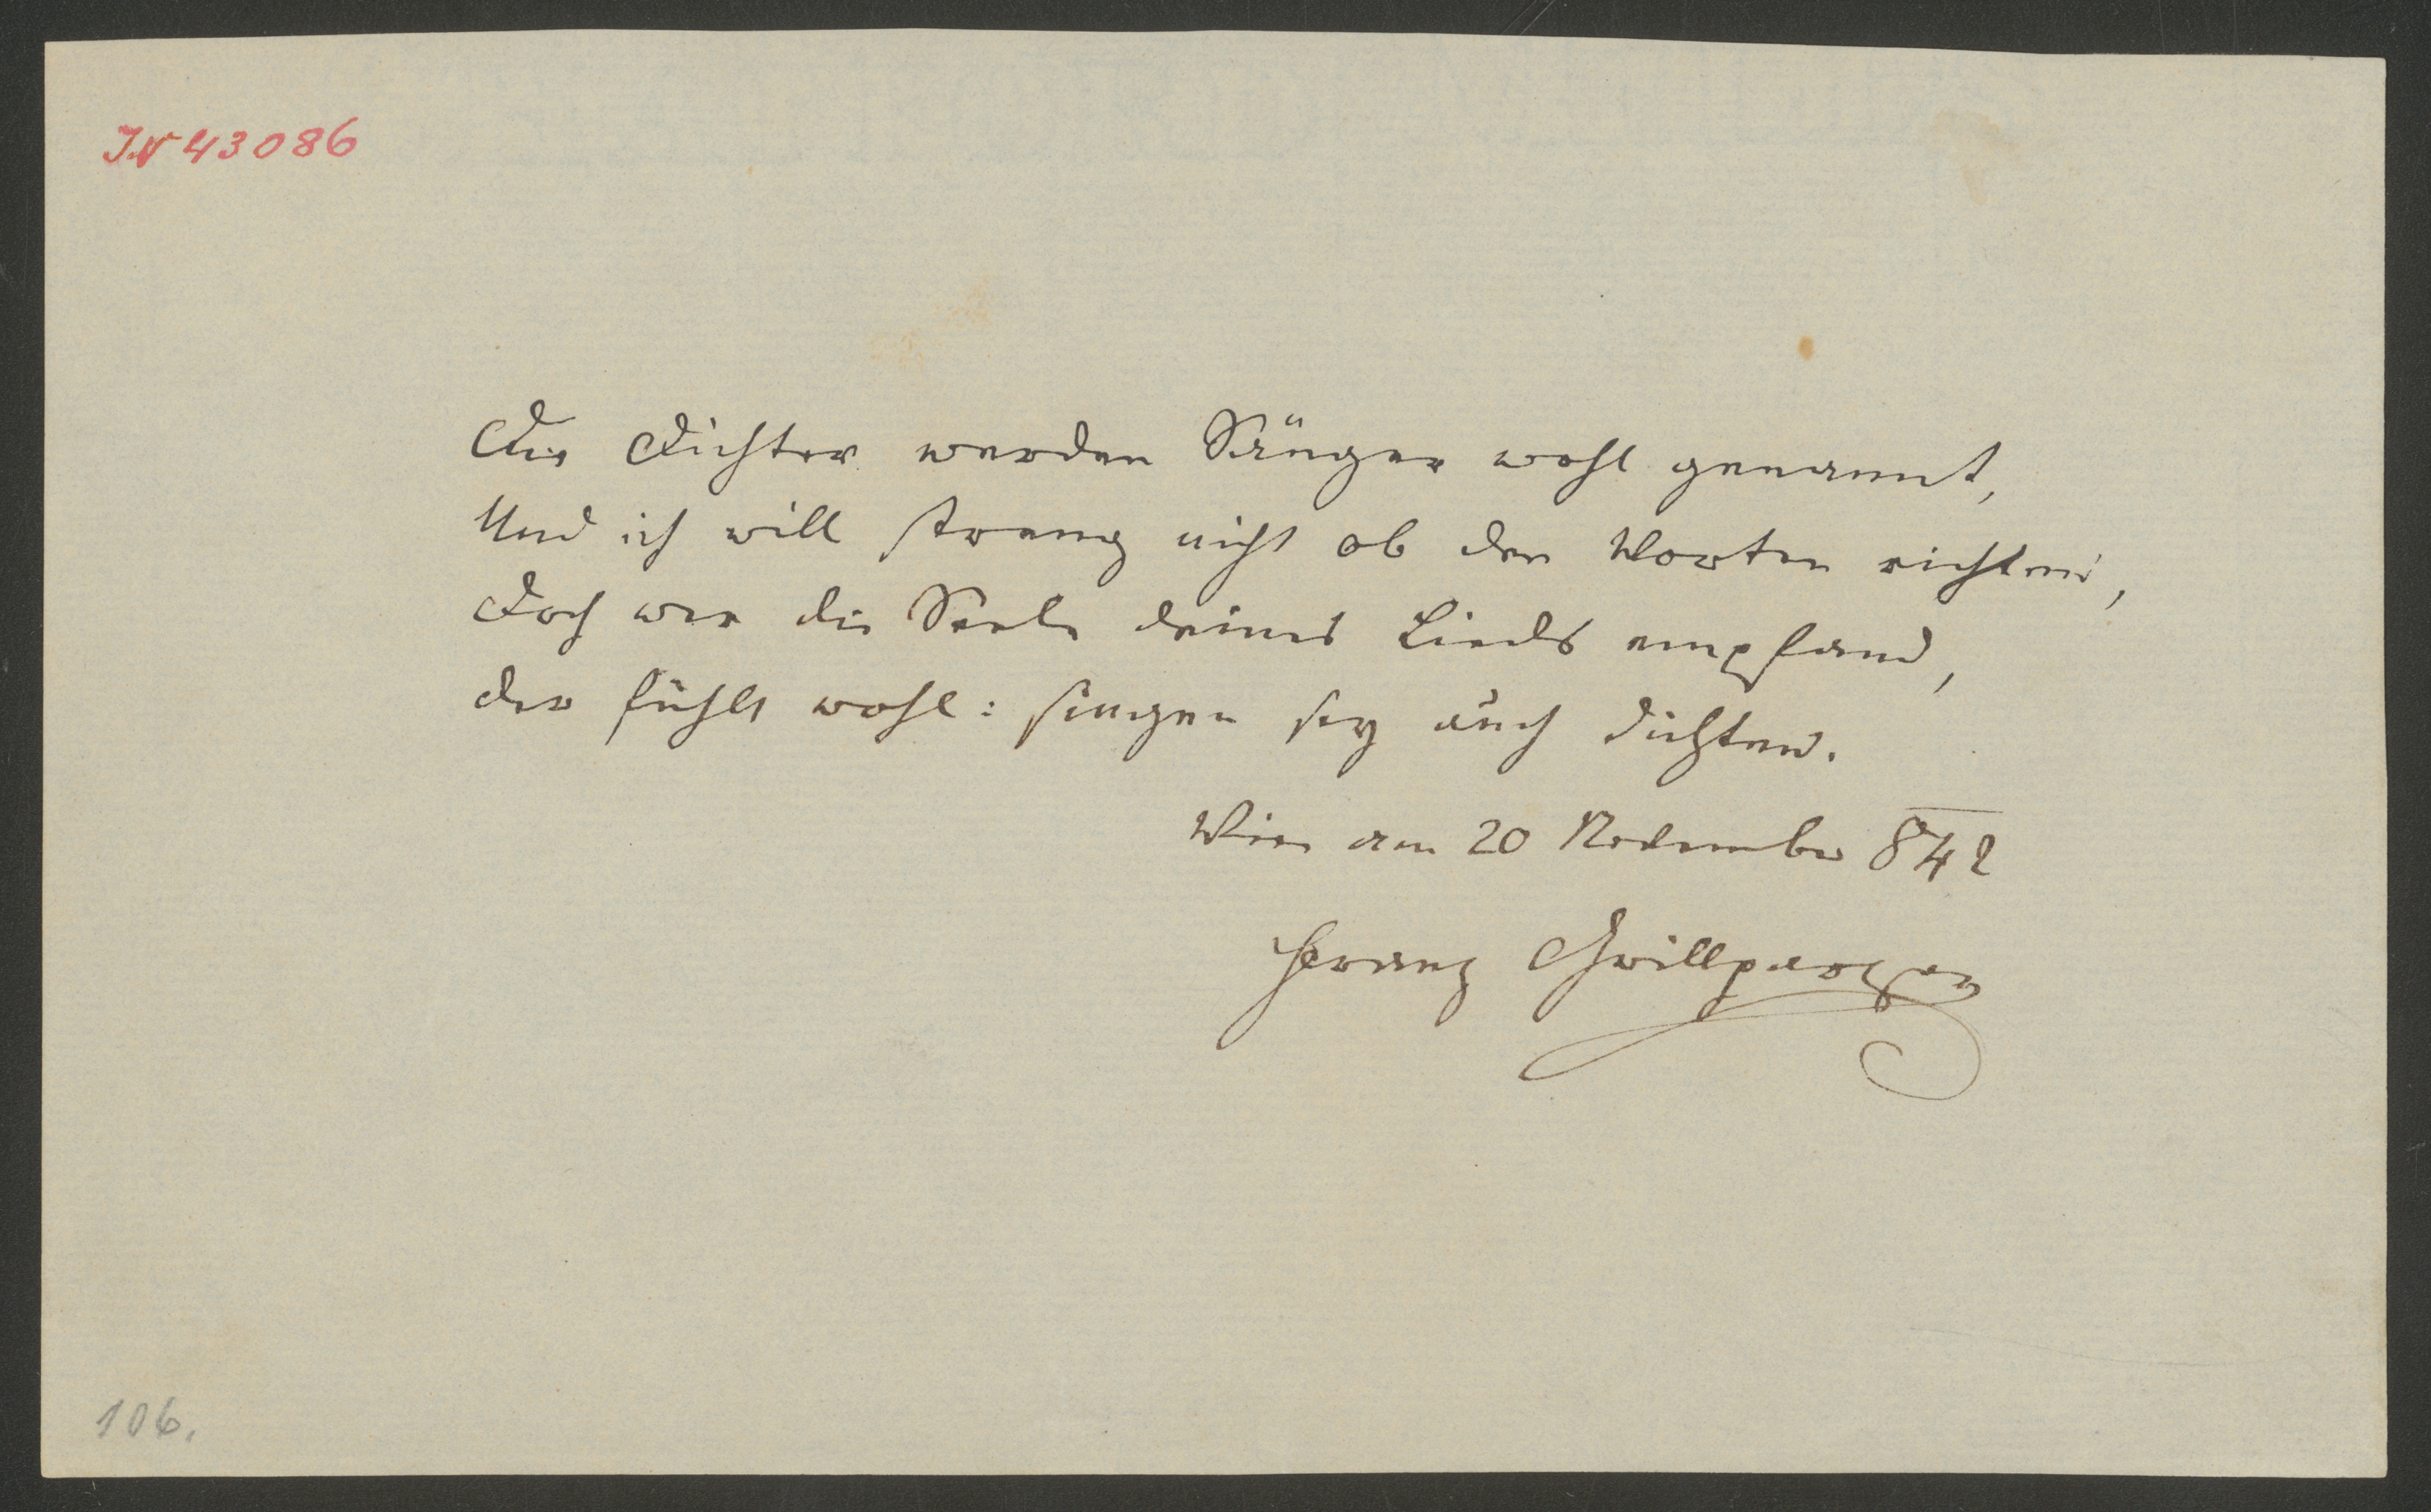 IN 43086
Die Dichter werden Sänger wohl genannt,
Und ich will streng nicht ob den Worten richten,
Doch wer die Seele deines Lieds empfand,
der fühlt wohl: singen sey auch dichten.
Wien am 20 November 842
Franz Grillparzer
106.